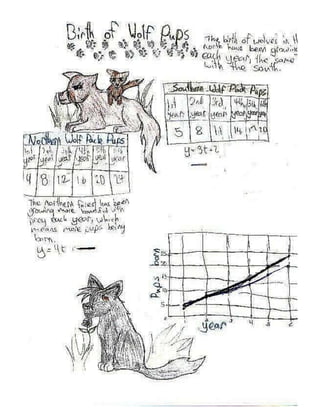 Birth of Wolf Pups
The birth of wolves in the
north have been growing
each year, the same
with the south.
Southern Wolf Pack Pups
1st 2nd 3rd 4th 5th 6th
year year year year year year
5 8 11 14 17 20
y=3t+2
Northern Wolf Pack Pups
1st 2nd 3rd 4th 5th 6th
year year year year year year
4 8 12 16 20 24
The northern forest has been
growing more bountiful with
prey each year, which
means more pups being
born.
y=4t
Pups born
year